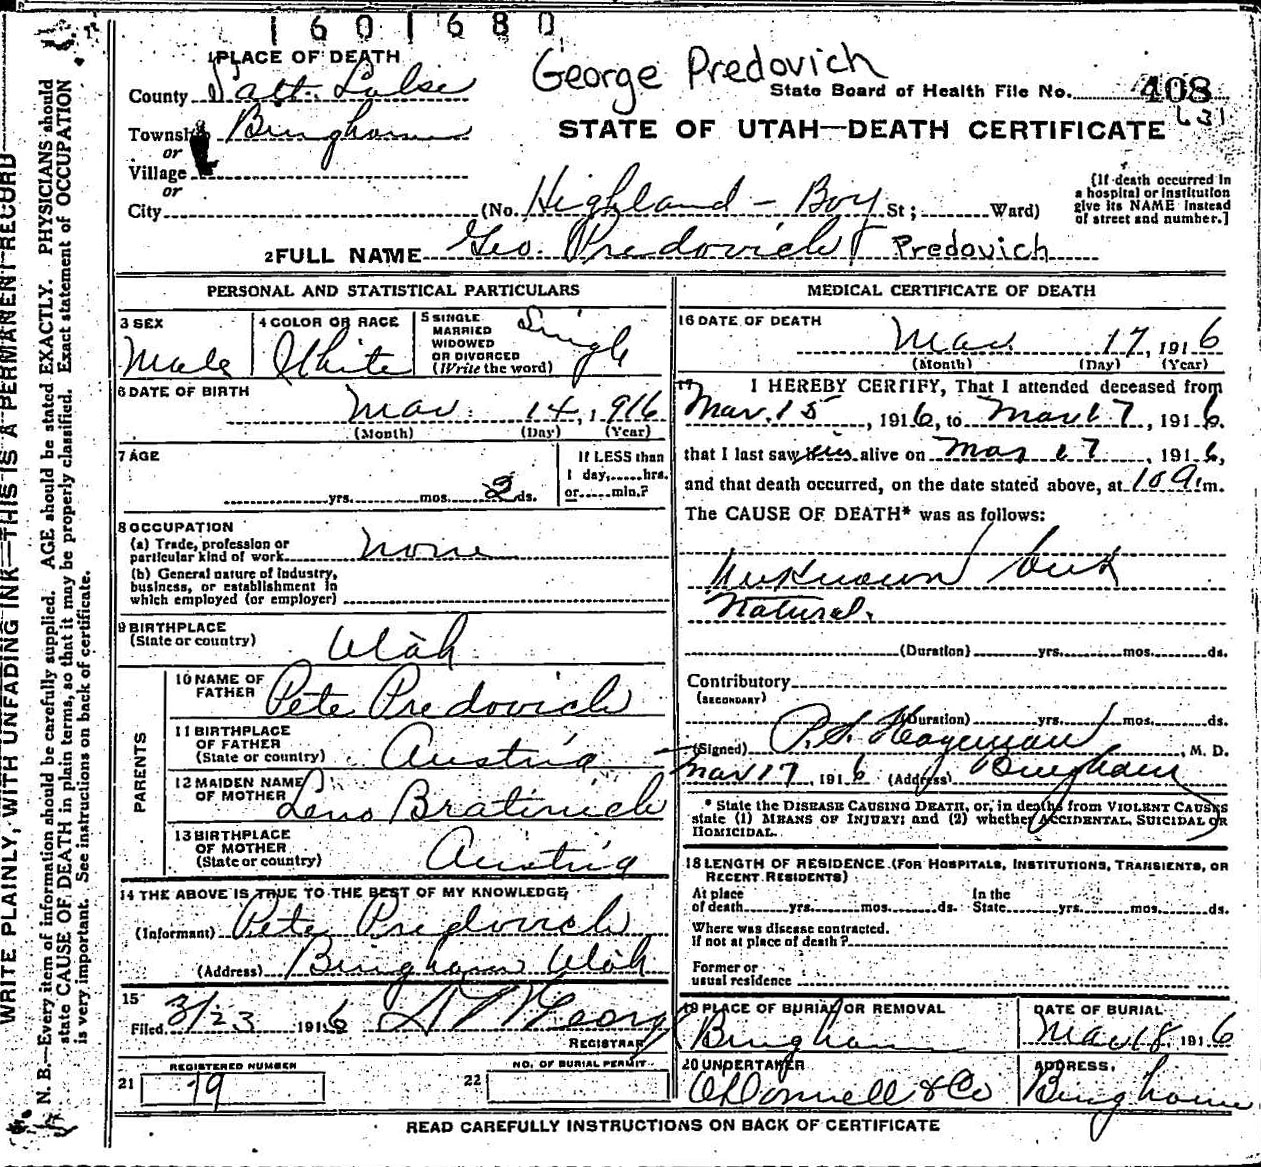 1601680
1 PLACE OF DEATH
George Predovich
County Salt Lake
State Board of Health File No. 408
631
Township Bingham
STATE OF UTAH—DEATH CERTIFICATE
or
Village
or
City (No. Highland - Boy St; Ward)
{If death occurred in a hospital or institution give its NAME instead of street and number.]
2 FULL NAME Geo. Predovich Predovich
PERSONAL AND STATISTICAL PARTICULARS
3 SEX
Male
4 COLOR OR RACE
White
5 SINGLE MARRIED WIDOWED OR DIVORCED (Write the word)
Single
6 DATE OF BIRTH
Mar. 14, 1916
(Month) (Day) (Year)
7 AGE
yrs. mos. ds.
If LESS than 1 day, hrs. or min.?
8 OCCUPATION
(a) Trade, profession or particular kind of work None
(b) General nature of industry, business, or establishment in which employed (or employer)
9 BIRTHPLACE
(State or country) Utah
PARENTS
10 NAME OF FATHER Pete Predovich
11 BIRTHPLACE OF FATHER (State or country) Austria
12 MAIDEN NAME OF MOTHER Lena Bratinich
13 BIRTHPLACE OF MOTHER (State or country) Austria
14 THE ABOVE IS TRUE TO THE BEST OF MY KNOWLEDGE,
(Informant) Pete Predovich
(Address) Bingham Utah
15
Filed 3/23 1916
REGISTRAR
REGISTERED NUMBER
21 19
NO. OF BURIAL PERMIT
22
MEDICAL CERTIFICATE OF DEATH
16 DATE OF DEATH
Mar. 17, 1916
(Month) (Day) (Year)
17 I HEREBY CERTIFY, That I attended deceased from
Mar. 15, 1916, to Mar 17, 1916.
that I last saw him alive on Mar 17, 1916,
and that death occurred, on the date stated above, at 10 a. m.
The CAUSE OF DEATH* was as follows:
Unknown but
Natural.
(Duration) yrs. mos. ds.
Contributory
(SECONDARY)
(Duration) yrs. mos. ds.
(Signed) P.S. Hageman, M. D.
Mar 17 1916 (Address) Bingham
* State the DISEASE CAUSING DEATH, or, in deaths from VIOLENT CAUSES
state (1) MEANS OF INJURY; and (2) whether ACCIDENTAL, SUICIDAL OR
HOMICIDAL.
18 LENGTH OF RESIDENCE (FOR HOSPITALS, INSTITUTIONS, TRANSIENTS, OR
RECENT RESIDENTS)
At place of death yrs. mos. ds. In the State yrs. mos. ds.
Where was disease contracted,
if not at place of death?
Former or
usual residence
19 PLACE OF BURIAL OR REMOVAL
Bingham
DATE OF BURIAL
Mar 18, 1916
20 UNDERTAKER
O'Donnell & Co
ADDRESS,
Bingham
READ CAREFULLY INSTRUCTIONS ON BACK OF CERTIFICATE
WRITE PLAINLY, WITH UNFADING INK—THIS IS A PERMANENT RECORD
N. B.—Every item of information should be carefully supplied. AGE should be stated EXACTLY. PHYSICIANS should
state CAUSE OF DEATH in plain terms, so that it may be properly classified. Exact statement of OCCUPATION
is very important. See instructions on back of certificate.